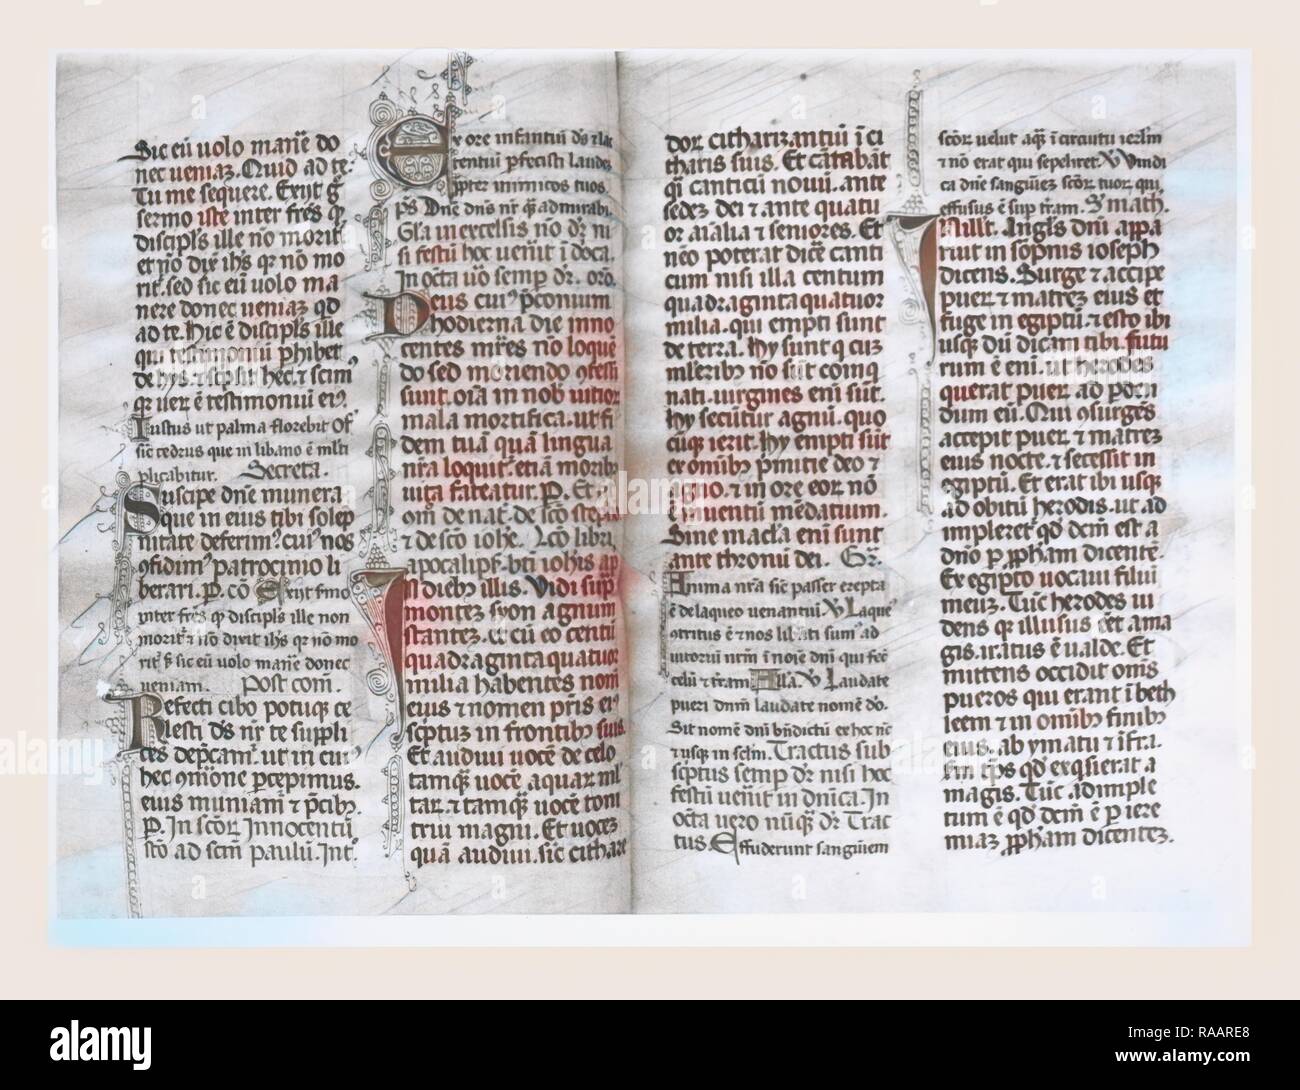 Sic eū uolo man̄e do
nec ueniaz. Quid ad te.
Tu me sequere. Exijt g̅
sermo iste inter fr̄es q̨
discipl̄s ille nō morit̄
et nō dix̄ ih̄s q̨ nō mo
rit̄. sed sic eū uolo ma
nere donec ueniaz qd̄
ad te. Hic ē discipl̄s ille
qui testimoniū phibet
de hijs. ⁊ sc̄psit hec. ⁊ scim⁹
q̨ uer̄ ē testimoniū ei⁹.
Iustus ut palma florebit Of
sic̄ cedrus que in libano ē ml̄ti
plicabitur. Secreta.
Suscipe dn̄e munera
que in eius tibi solep
nitate deferim⁹. cui⁹ nos
ꝯfidim⁹ patrocinio li
berari. P. cō Exijt s̄mo
inter fr̄es q̨ discipl̄s ille non
morit̄ ⁊ nō dixit ih̄s q̨ nō mo
rit̄ s̄ sic eū uolo man̄e donec
ueniam. Post com̄.
Refecti cibo potuq̨ ce
lesti d̄s nr̄ te suppli
ces dep̄cam̄. ut in cui⁹
hec ꝯmōne p̄cepimus.
eius muniam̄ ⁊ p̄cibȝ.
P. In sc̄oꝝ Innocentiū
st̄o ad sc̄m paulū. Int̄.
Ex ore infantiū d̄s ⁊ lac
tentiū p̄fecisti laudeȝ
ꝓpter inimicos tuos.
p̄s Dn̄e dn̄s nr̄ q̨ admirabi
Gl̄a in excelsis nō d̄r ni
si festū hoc uen̄it ī dōca.
In octa uō semp d̄r. orō.
Deus cui⁹ p̄conium
hodierna die inno
centes mr̄es nō loquē
do sed moriendo ꝯfessi
sunt. oīa in nob uitioꝝ
mala mortifica. ut fi
dem tuā quā lingua
nr̄a loquit̄. etiā moribȝ
uita fateatur. P. Et
om̄ de nat̄. de sc̄o steph
⁊ de sc̄o ioh̄e. Lc̄o libri
apocalips̄. bt̄i ioh̄is ap
In diebȝ illis. Vidi sup̄
montez syon agnum
stantez. et cū eo centū
quadraginta quatuor
milia habentes nom̄
eius ⁊ nomen pr̄is ei⁹
sc̄ptuz in frontibȝ suis.
Et audiui uocē de celo
tamq̨̄ uocē aquaꝝ ml̄
tar̄. ⁊ tamq̨̄ uocē toni
trui magni. Et uocez
quā audiui. sic̄ cithare
doꝝ cithariz̨antiū ī ci
tharis suis. Et cātabāt
q̄i canticū nouū. ante
sedez dei ⁊ ante quatu
or aīalia ⁊ seniores. Et
nēo poterat dic̄e canti
cum nisi illa centum
quadraginta quatuor
milia. qui empti sunt
de terra. Hy sunt q̄ cuȝ
ml̄eribȝ nō sūt coinq̄
nati. uirgines eni sūt.
Hy secūtur agnū. quo
cūq̨ ierit. Hy empti sūt
ex om̄ibȝ p̄mitie deo ⁊
agno. ⁊ in ore eoꝝ nō
ē inuentū mēdatium.
Sine macl̄a eni sunt
ante thronū dei. Gr̄.
Anima nr̄a sic̄ passer erepta
ē de laqueo uenantiū V̄ Laque⁹
ꝯtritus ē ⁊ nos lib̄ati sum⁹ ad
iutoriū nr̄m ī noīe dn̄i qui fec̄
celū ⁊ t̄ram All̄a. V̄ Laudate
pueri dn̄m laudate nomē dō.
Sit nomē dn̄i bn̄dictū ex hoc n̄c
⁊ usq̨ in sc̄lm. Tractus sub
sc̄ptus semp d̄r nisi hoc
festū uen̄it in dn̄ica. In
octa uero nūq̨̄ d̄r Trac
tus. Effuderunt sanguīem
sc̄oꝝ uelut aq̄ ī circuitu ierl̄m
⁊ nō erat qui sepeliret. V̄ Vindi
ca dn̄e sanguīez sc̄oꝝ tuoꝝ qui
effusus ē sup t̄ram. S. math.
In ill̄t. Angl̄s dn̄i appa
ruit in sopnis ioseph
dicens. Surge ⁊ accipe
pueꝝ ⁊ matrez eius et
fuge in egiptū. ⁊ esto ibi
usq̨ dū dicam tibi. futu
rum ē eni. ut herodes
querat pueꝝ ad p̄den
dum eū. Qui ꝯsurgēs
accepit pueꝝ ⁊ matrez
eius nocte. ⁊ secessit in
egiptū. Et erat ibi usq̨
ad obitū herodis. ut ad
impleret̄ qd̄ dc̄m est a
dn̄o p ꝓph̄am dicentē.
Ex egipto uocaui filiū
meuz. Tūc herodes ui
dens q̨ illusus eēt a ma
gis. iratus ē ualde. Et
mittens occidit om̄s
pueros qui erant ī beth
leem ⁊ in om̄ibȝ finibȝ
eius. ab ymatu ⁊ īfra.
scd̄m tp̄s qd̄ exq̄sierat a
magis. Tūc adimple
tum ē qd̄ dc̄m ē p iere
miaz ꝓph̄am dicentez.
alamy
alamy stock photo
Image ID: RAARE8
www.alamy.com